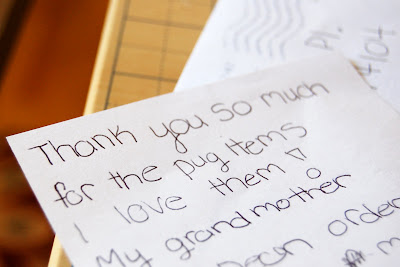 Thank you so much
for the pug items
I love them ♡
My grandmother
order
Pl.
4104